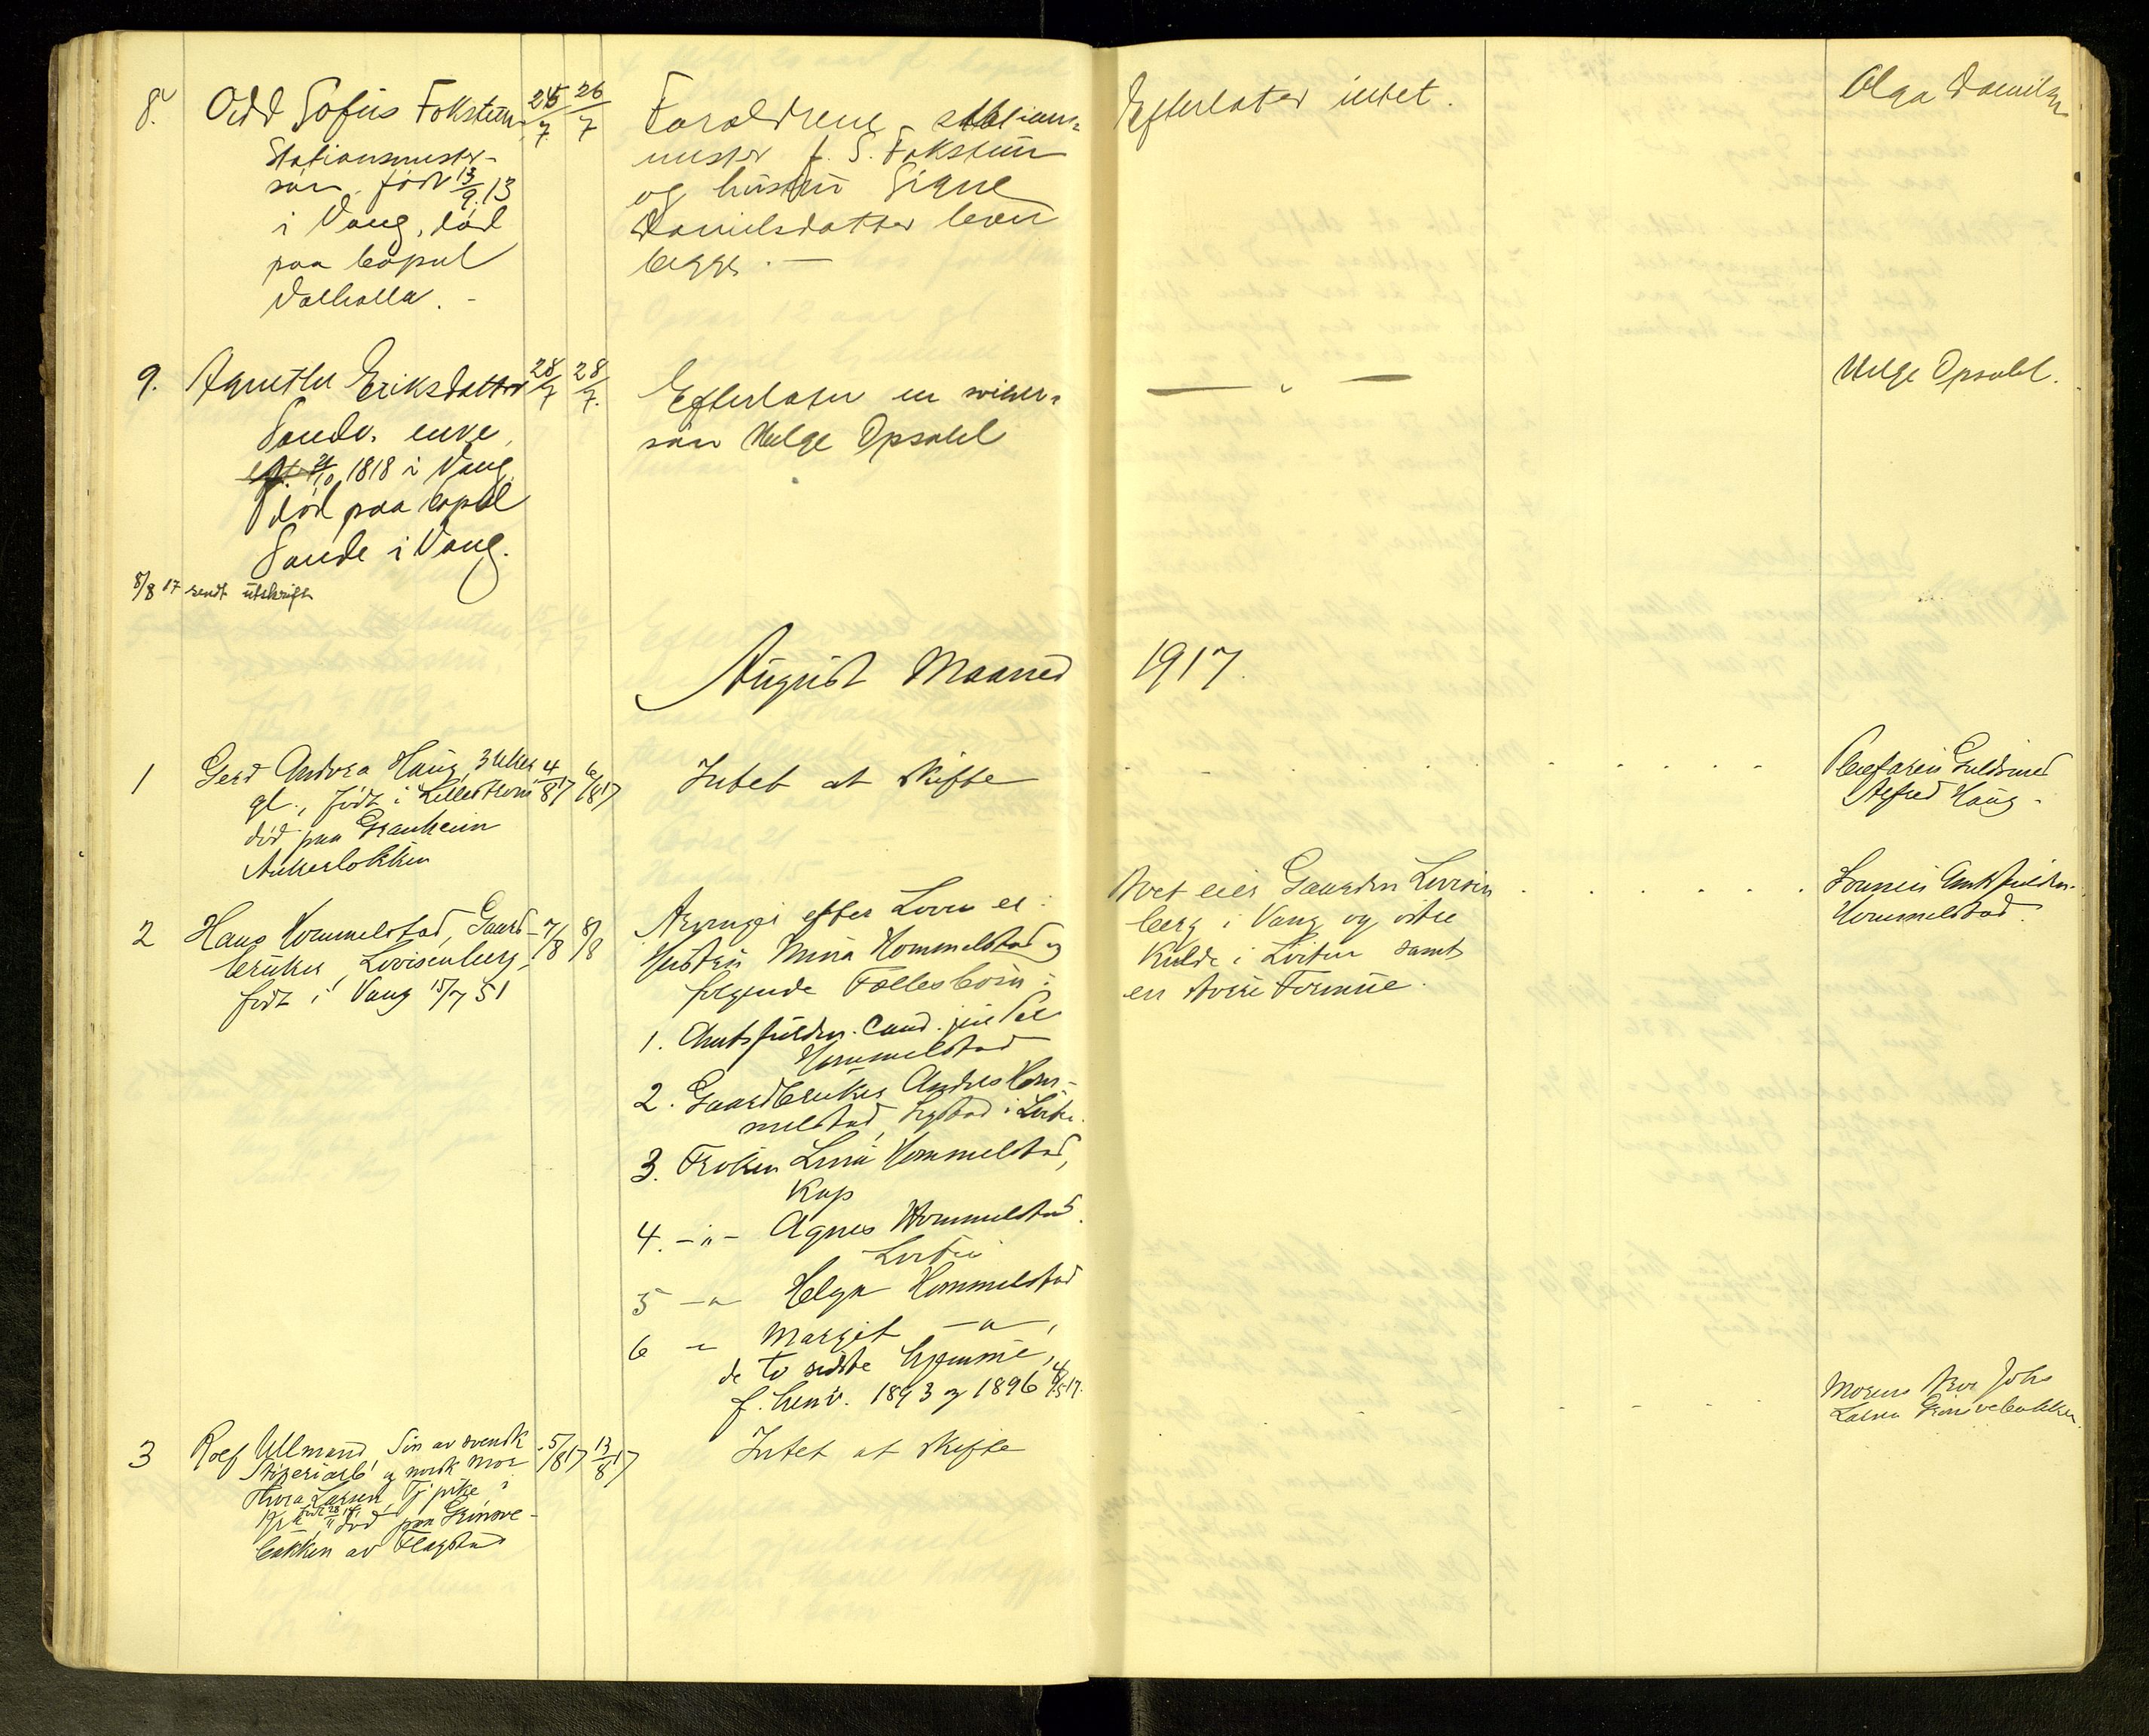 8. Odd Sofus Fokstuen
Stationsmester-
søn, född 13/9.13
i Vang, död
paa bopæl
Valhalla. -
25/7 26/7
Foreldrene stations-
mester f. S. Fokstuen
og hustru Signe
Danielsdatter lever
begge. -
Efterlater intet.
Olga Danielsen
9. Agnethe Eriksdatter
Sande, enke,
1818 i Vang
död paa bopæl
Sande i Vang.
28/7 28/7.
Efterlater en søster-
søn Helge Opsahl
— " —
Helge Opsahl.
8/8 17 sendt utskrift
August Maaned 1917.
1 Gerd Andrea Haug, 3 uker
gl., födt i Lillestrøm
död paa Granheim
Ankerløkken
4/8 17 6/8 17
Intet at skifte
Pleefaren Guldsmed
Alfred Haug.
2 Hans Hommelstad, Gaard-
bruker, Lovisenberg,
födt i Vang 15/7 51
7/8 8/8
Arvinger efter Loven er:
Hustru Mina Hommelstad og
følgende Fællesbörn:
1. Amtsfuldm. Cand. jur
Hommelstad
2. Gaardbruker Andres Hom-
melstad, i Löiten.
3. Frøken Lina Hommelstad,
Kap
4. -"- Agnes Hommelstad
Löiten
5 -"- Helga Hommelstad
6 " Margit -"-,
de to sidste hjemme,
f. henv. 1893 og 1896
Boet eier Gaarden Lovisen
berg i Vang og østre
Kulde i Löiten samt
en Formue.
Sønnen Amtsfuldm.
Hommelstad.
3 Rolf Ullmand, Sön av svensk
og norsk mor
Thora Larsen, Tj.pike i
död paa Grinove-
bakken av Flagstad
5/8 17 13/8 17
Intet at skifte
Morens Bror Johs
Larsen Grinvebakken